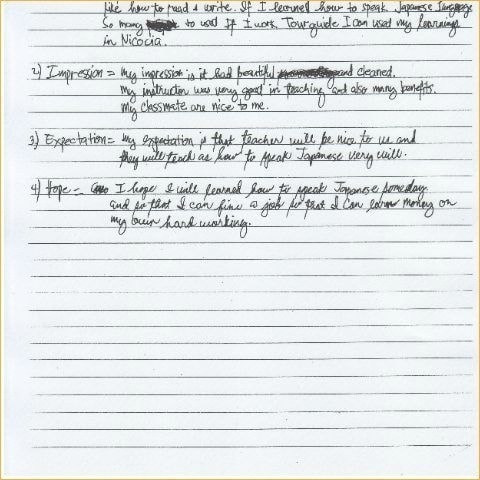 like how to read & write. If I learned how to speak Japanese language
So many to used If I work Tourguide I can used my learnings
in Nicocia.
2) Impression = my impression is it had beautiful and cleaned.
my instructor was very good in teaching and also many benefits.
my classmate are nice to me.
3) Expectation = my expectation is that teacher will be nice to us and
they will teach as how to speak Japanese very will.
4) Hope = I hope I will learned how to speak Japanese someday
and so that I can fine a job so that I can earn money on
my own hard working.